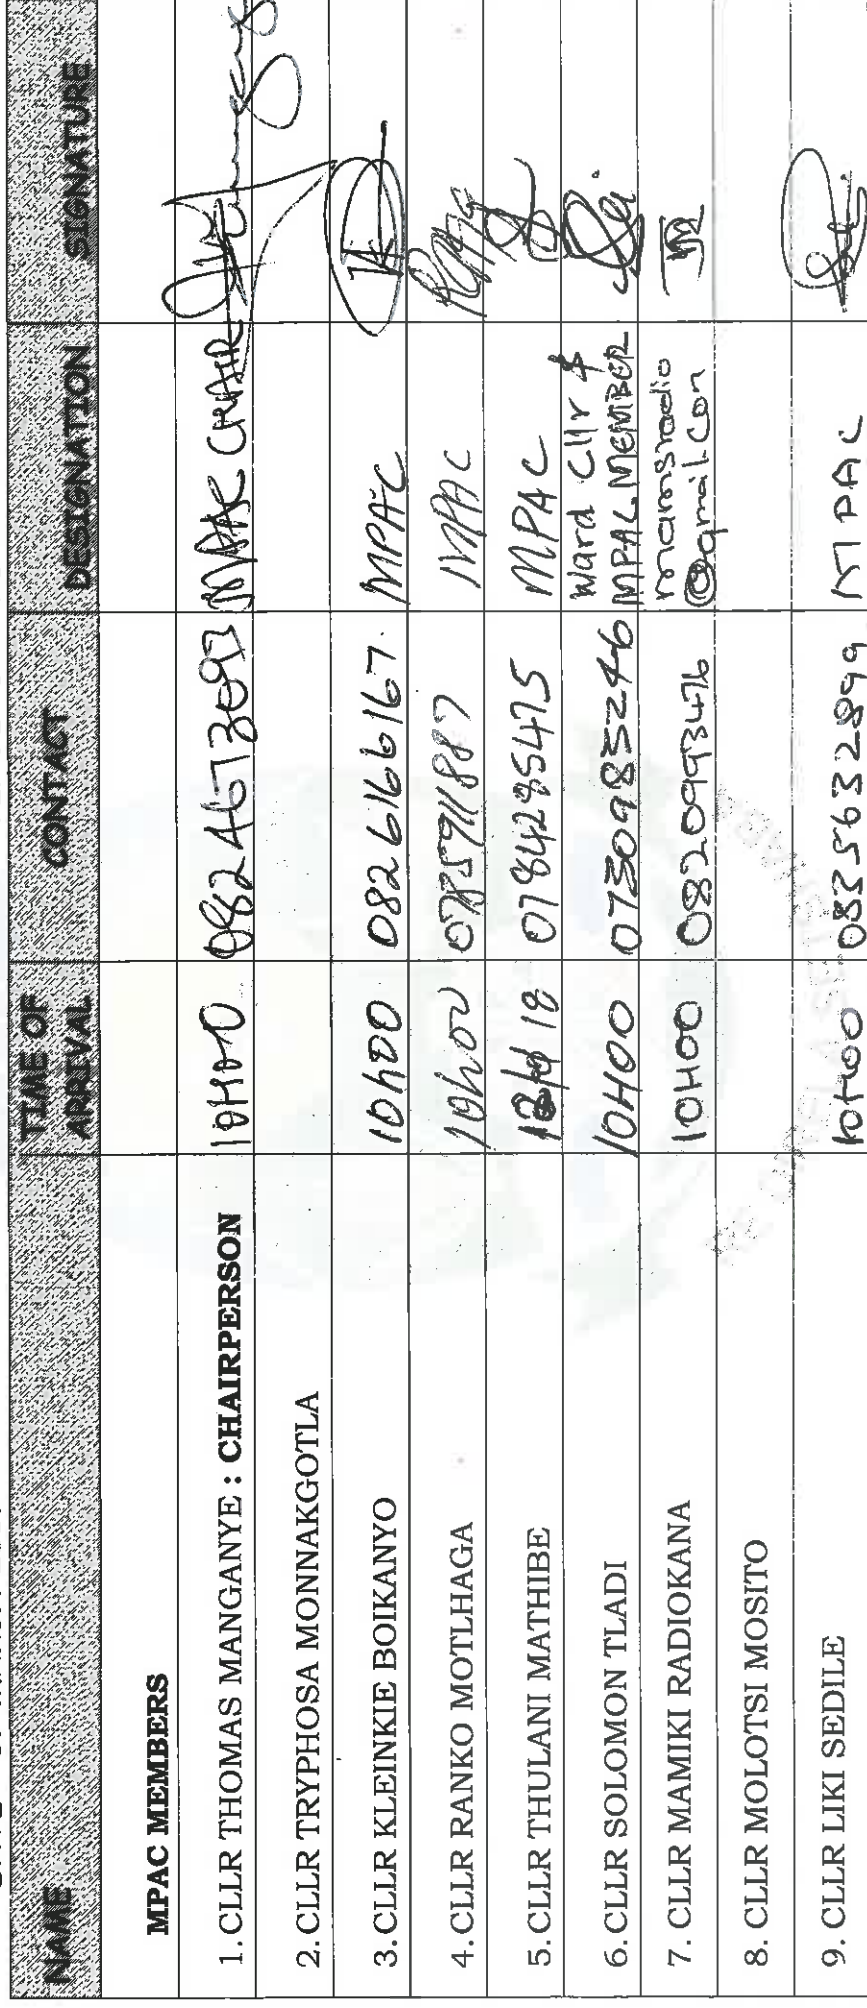 NAME TIME OF ARRIVAL CONTACT DESIGNATION SIGNATURE
MPAC MEMBERS
1. CLLR THOMAS MANGANYE : CHAIRPERSON 10H00 0824673093 MPAC CHAIR
2. CLLR TRYPHOSA MONNAKGOTLA
3. CLLR KLEINKIE BOIKANYO 10h00 0826166167. MPAC
4. CLLR RANKO MOTLHAGA 10h00 MPAC
5. CLLR THULANI MATHIBE 0784285475 MPAC
6. CLLR SOLOMON TLADI 10H00 0730983246 Ward Cllr &
MPAC MEMBER
7. CLLR MAMIKI RADIOKANA 10H00 0820993476 mamsradio
@gmail.com
8. CLLR MOLOTSI MOSITO
9. CLLR LIKI SEDILE 10H00 0835632899 MPAC